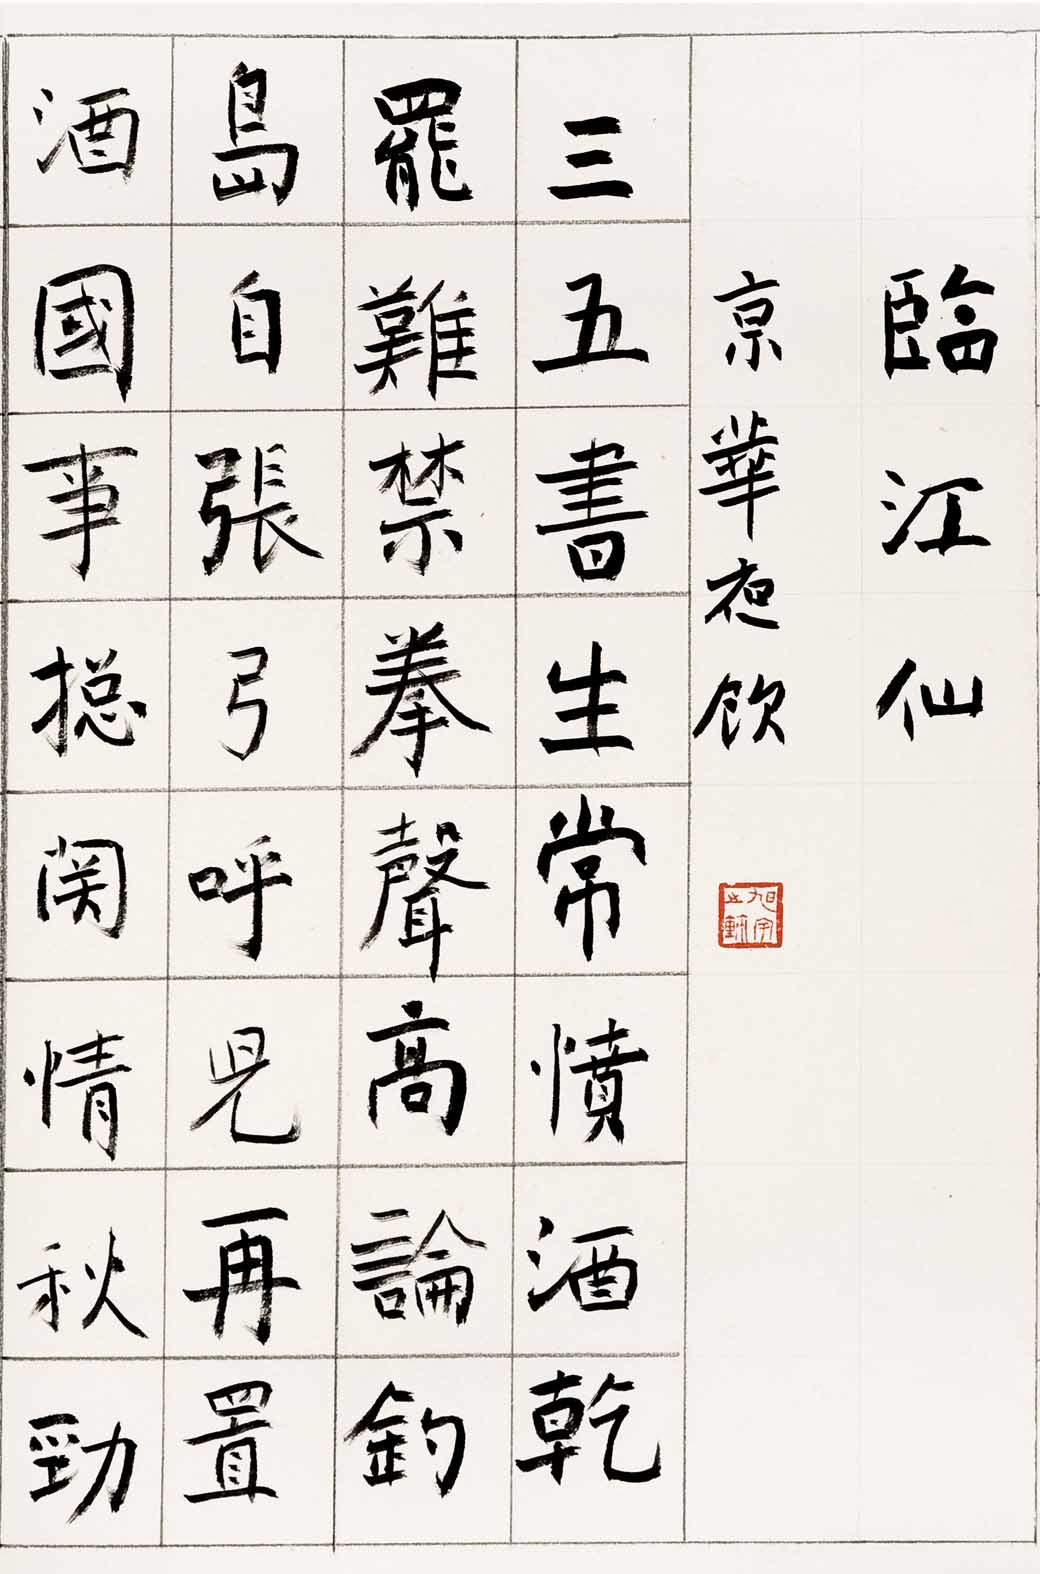 臨江仙
京華夜飲
三五書生常憤酒乾
罷難禁拳聲高論釣
島自張弓呼兒再置
酒國事挽関情秋勁